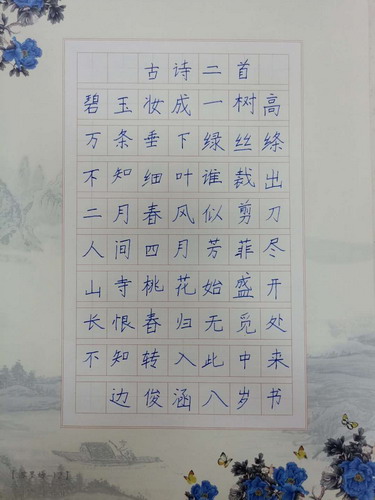 古诗二首
碧玉妆成一树高
万条垂下绿丝绦
不知细叶谁裁出
二月春风似剪刀
人间四月芳菲尽
山寺桃花始盛开
长恨春归无觅处
不知转入此中来
边俊涵八岁书